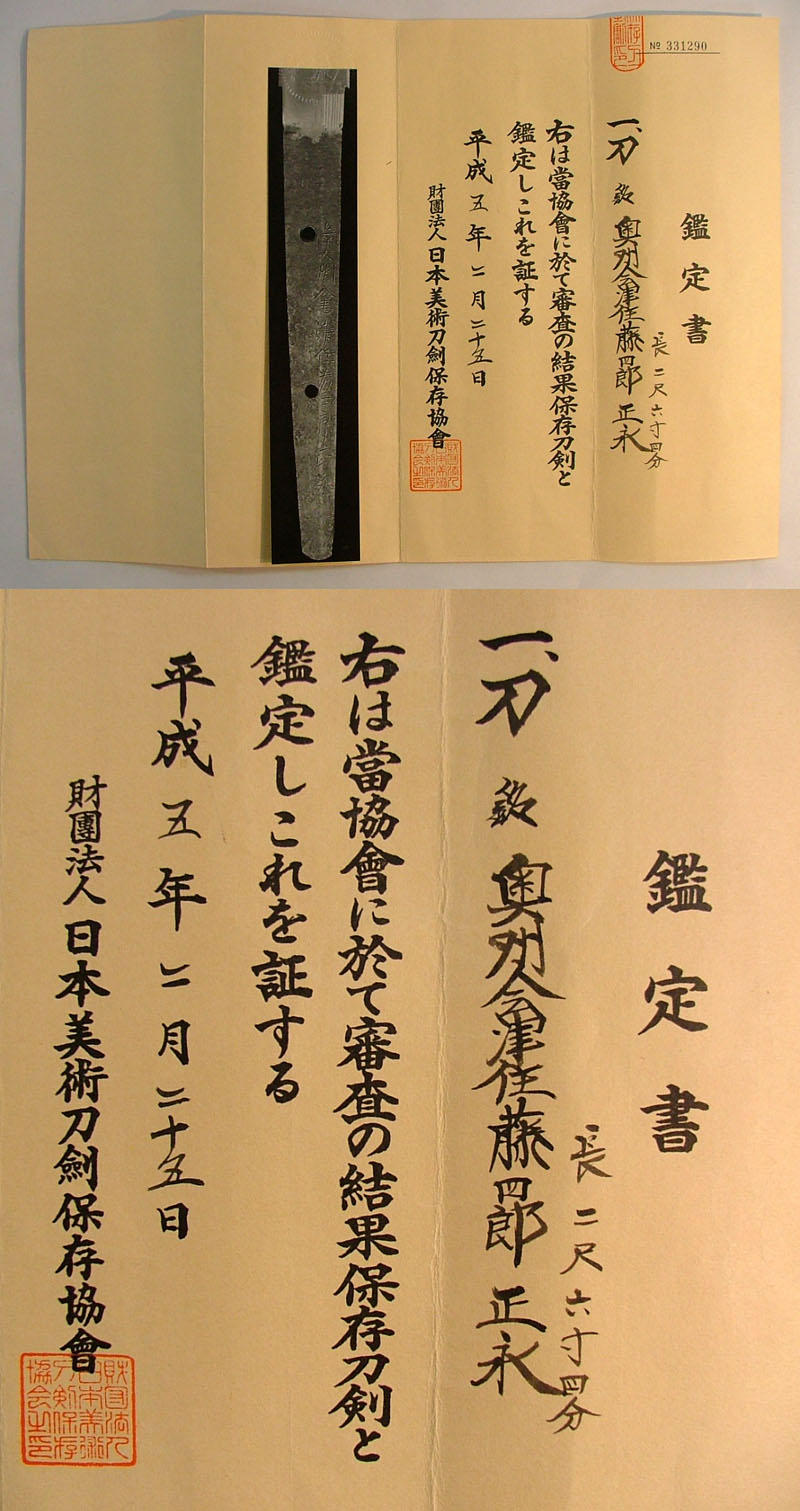 № 331290
鑑定書
一、刀 銘 奥州会津住藤四郎正永
長二尺六寸四分
右は當協會に於て審査の結果保存刀剣と
鑑定しこれを証する
平成五年二月二十五日
財團法人日本美術刀劍保存協會
鑑定書
長二尺六寸四分
一、刀 銘 奥州会津住藤四郎正永
右は當協會に於て審査の結果保存刀剣と
鑑定しこれを証する
平成五年二月二十五日
財團法人日本美術刀劍保存協會
財団法人
日本美術
刀剣保存
協会之印